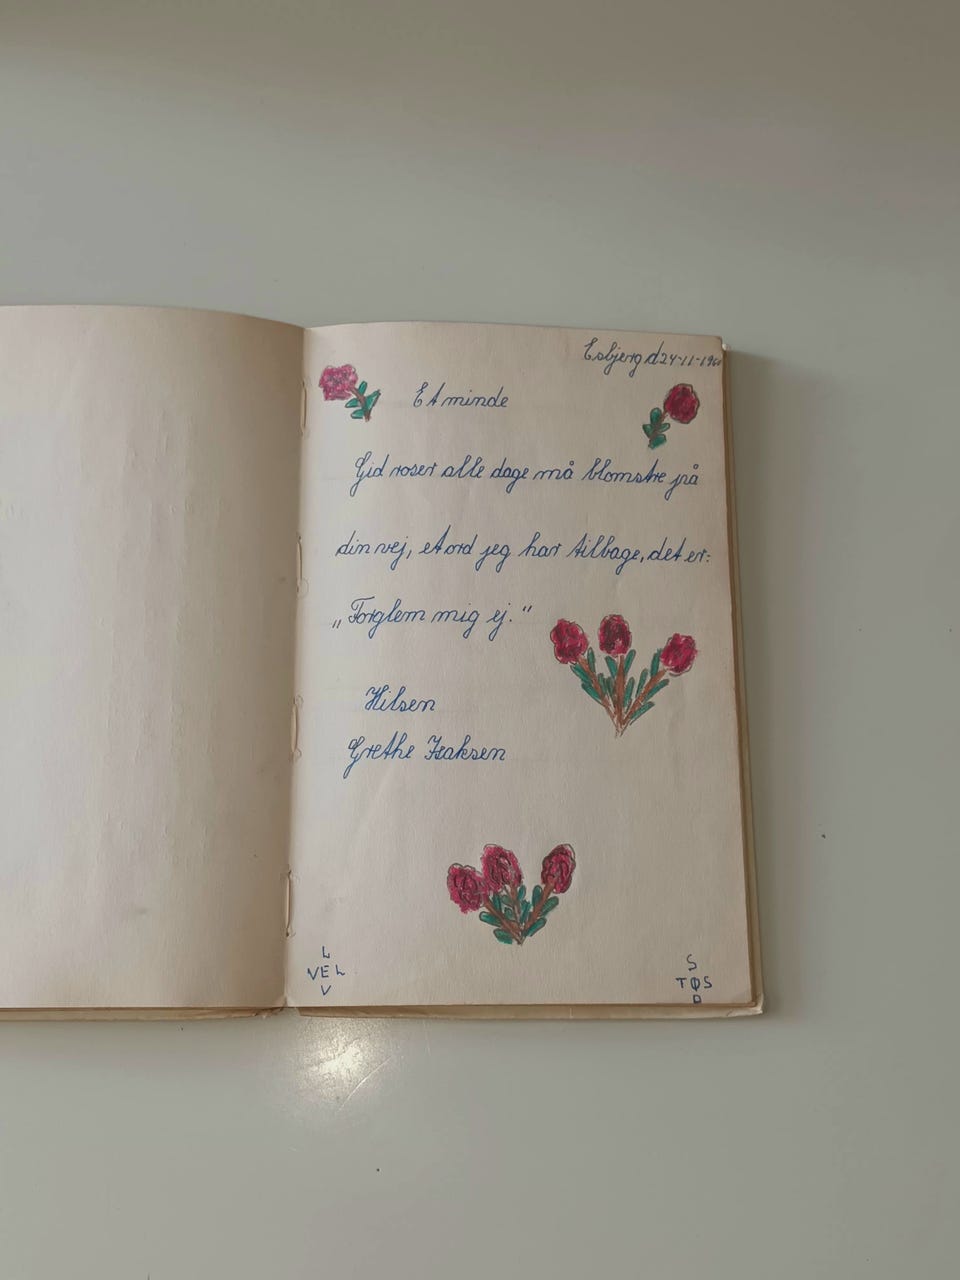 Esbjerg d 24-11-196
Et minde
Gid roser alle dage må blomstre på
din vej, et ord jeg har tilbage, det er:
„Forglem mig ej."
Hilsen
Grethe Isaksen
L
VEL
V
S
TØS
D